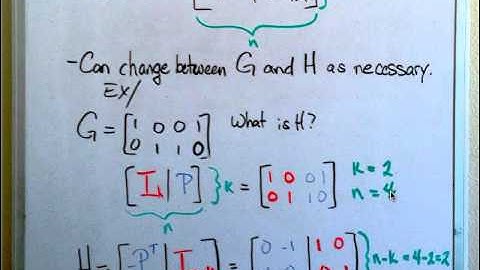 n
-Can change between G and H as necessary.
EX/
G = [1 0 0 1
0 1 1 0] What is H?
[I_k | P] } k = [1 0 0 1
0 1 1 0] k = 2
n = 4
n
H = [-P^T | I = [0 -1 | 1 0 } n-k = 4-2=2